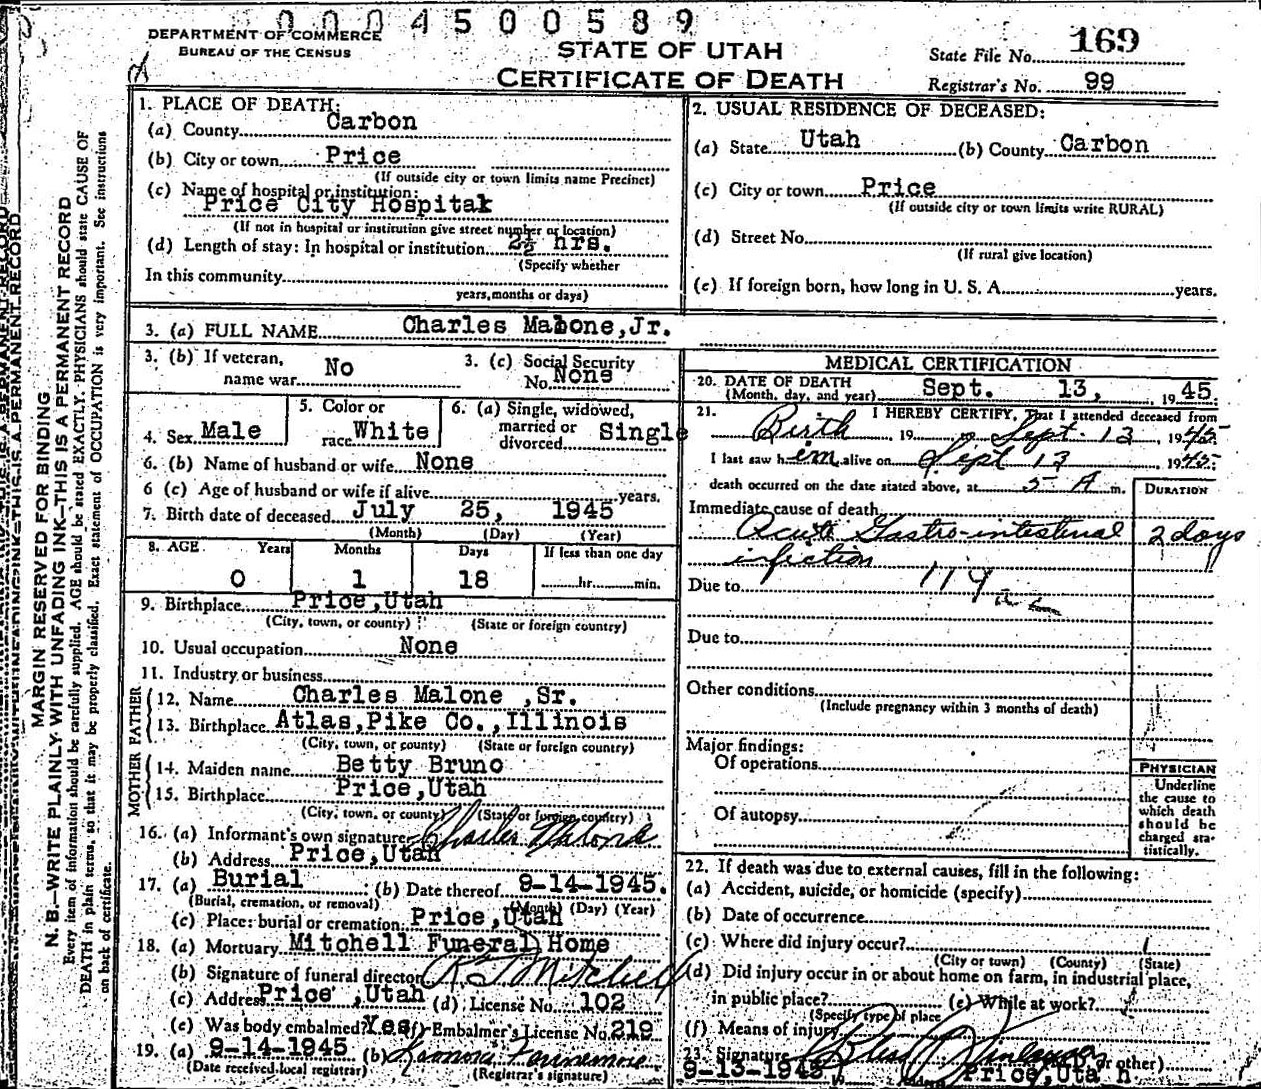 0004500589
DEPARTMENT OF COMMERCE
BUREAU OF THE CENSUS
STATE OF UTAH
CERTIFICATE OF DEATH
State File No. 169
Registrar's No. 99
MARGIN RESERVED FOR BINDING
N. B.—WRITE PLAINLY WITH UNFADING INK—THIS IS A PERMANENT RECORD
Every item of information should be carefully supplied. AGE should be stated EXACTLY. PHYSICIANS should state CAUSE OF
DEATH in plain terms, so that it may be properly classified. Exact statement of OCCUPATION is very important. See instructions
on back of certificate.
1. PLACE OF DEATH:
(a) County Carbon
(b) City or town Price
(If outside city or town limits name Precinct)
(c) Name of hospital or institution:
Price City Hospital
(If not in hospital or institution give street number or location)
(d) Length of stay: In hospital or institution 2½ hrs.
(Specify whether
In this community
years, months or days)
2. USUAL RESIDENCE OF DECEASED:
(a) State Utah (b) County Carbon
(c) City or town Price
(If outside city or town limits write RURAL)
(d) Street No.
(If rural give location)
(e) If foreign born, how long in U. S. A. years.
3. (a) FULL NAME Charles Malone, Jr.
3. (b) If veteran, name war No
3. (c) Social Security No. None
4. Sex Male
5. Color or race White
6. (a) Single, widowed, married or divorced Single
6. (b) Name of husband or wife None
6 (c) Age of husband or wife if alive years.
7. Birth date of deceased July 25, 1945
(Month) (Day) (Year)
8. AGE Years Months Days If less than one day
0 1 18 hr. min.
9. Birthplace Price, Utah
(City, town, or county) (State or foreign country)
10. Usual occupation None
11. Industry or business
FATHER
12. Name Charles Malone, Sr.
13. Birthplace Atlas, Pike Co., Illinois
(City, town, or county) (State or foreign country)
MOTHER
14. Maiden name Betty Bruno
15. Birthplace Price, Utah
(City, town, or county) (State or foreign country)
16. (a) Informant's own signature Charles Malone
(b) Address Price, Utah
17. (a) Burial (b) Date thereof 9-14-1945.
(Burial, cremation, or removal) (Month) (Day) (Year)
(c) Place: burial or cremation Price, Utah
18. (a) Mortuary Mitchell Funeral Home
(b) Signature of funeral director Mitchell
(c) Address Price, Utah (d) License No. 102
(e) Was body embalmed? Yes (f) Embalmer's License No. 219
19. (a) 9-14-1945 (b)
(Date received local registrar) (Registrar's signature)
MEDICAL CERTIFICATION
20. DATE OF DEATH
(Month, day, and year) Sept. 13, 1945.
21. I HEREBY CERTIFY, That I attended deceased from
Birth, 19 to Sept. 13, 1945
I last saw him alive on Sept 13 1945.
death occurred on the date stated above, at 5 A m.
DURATION
Immediate cause of death
Acute Gastro-intestinal 2 days
infection
Due to 119
Due to
Other conditions
(Include pregnancy within 3 months of death)
Major findings:
Of operations
Of autopsy
PHYSICIAN
Underline
the cause to
which death
should be
charged sta-
tistically.
22. If death was due to external causes, fill in the following:
(a) Accident, suicide, or homicide (specify)
(b) Date of occurrence
(c) Where did injury occur?
(City or town) (County) (State)
(d) Did injury occur in or about home on farm, in industrial place,
in public place? (e) While at work?
(Specify type of place
(f) Means of injury
23. Signature or other)
9-13-1945 Address Price, Utah